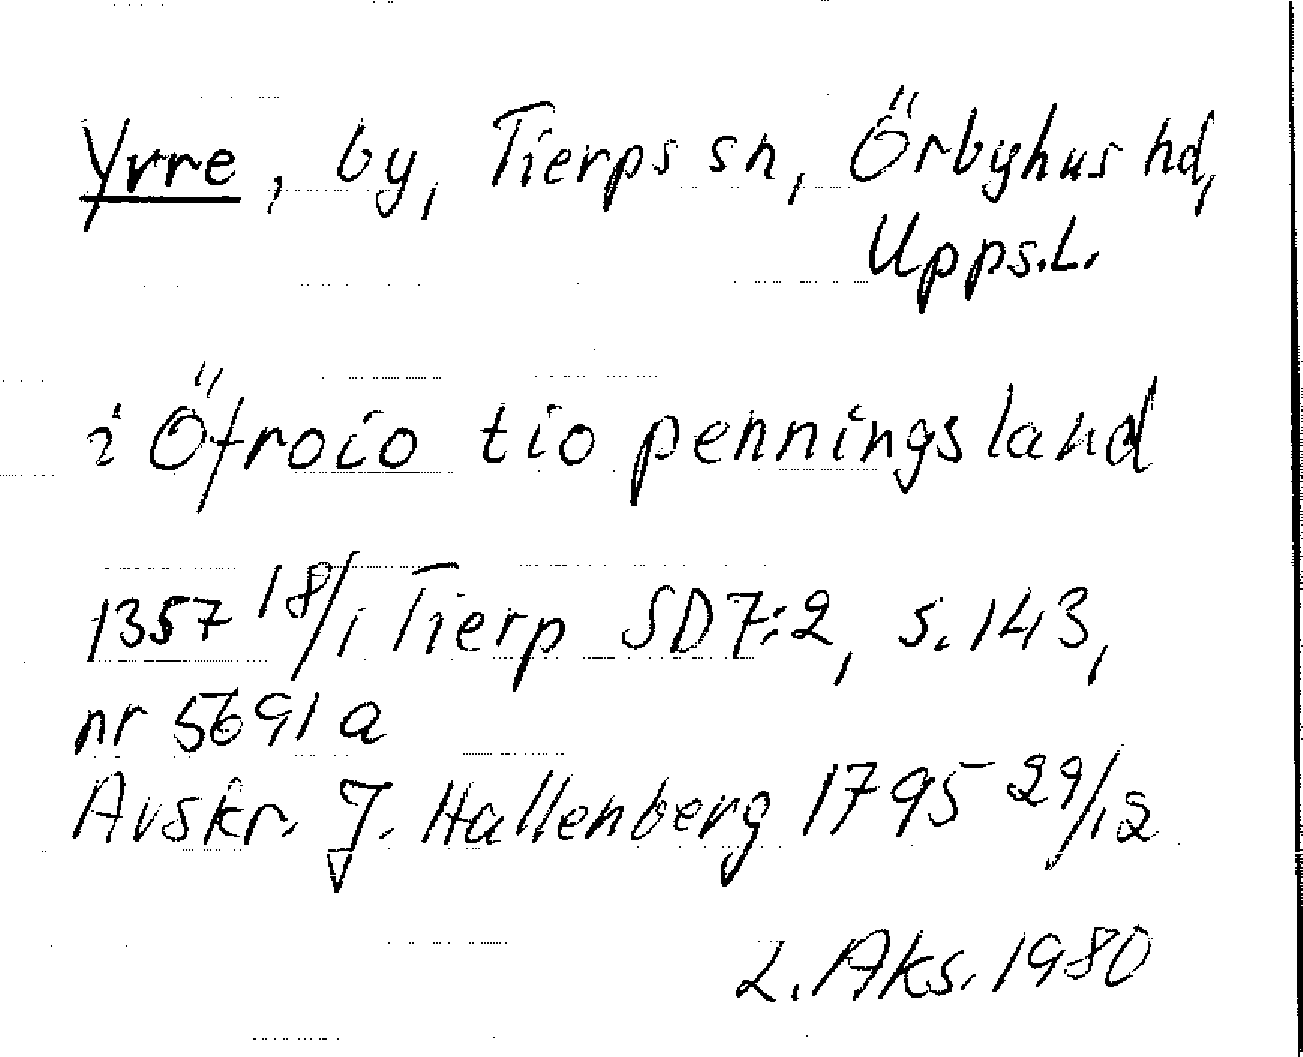 Yvre, by, Tierps sn, Örbyhus hd,
Upps.L.
i Öfroio tio penningsland
1357 18/1 Tierp SD7:2, s. 143,
nr 5691 a
Avskr. J. Hallenberg 1795 29/12
L. Aks. 1980